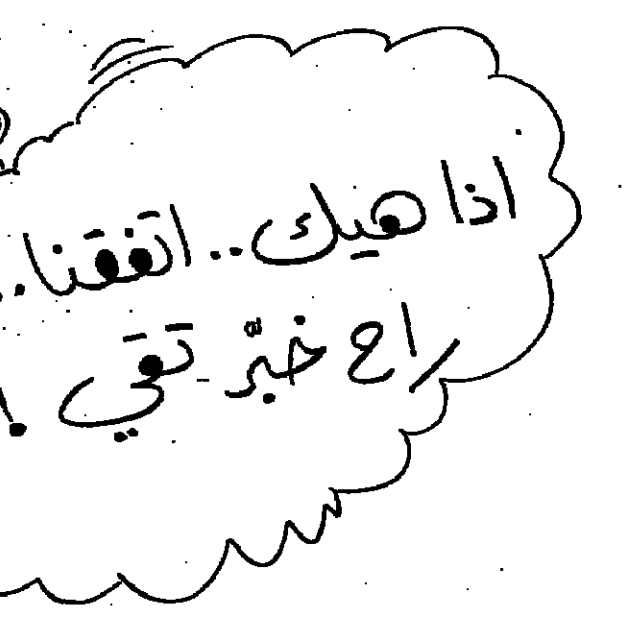 اذا هيك.. اتفقنا..
راح خبّر تقي !